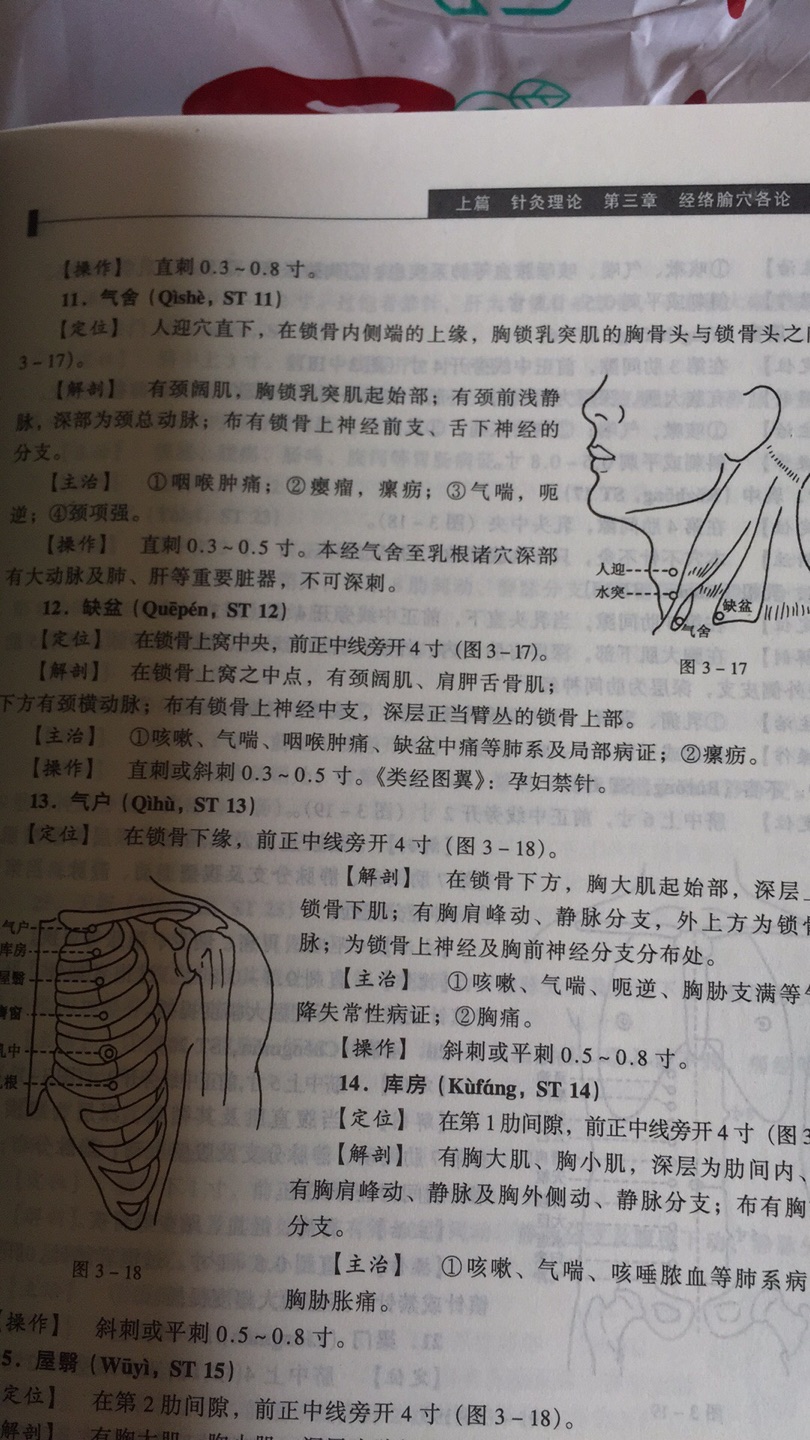 上篇 针灸理论 第三章 经络腧穴各论
【操作】 直刺0.3~0.8寸。
11．气舍（Qìshè，ST 11）
【定位】 人迎穴直下，在锁骨内侧端的上缘，胸锁乳突肌的胸骨头与锁骨头之
3-17）。
【解剖】 有颈阔肌，胸锁乳突肌起始部；有颈前浅静
脉，深部为颈总动脉；布有锁骨上神经前支、舌下神经的
分支。
【主治】 ①咽喉肿痛；②瘿瘤，瘰疬；③气喘，呃
逆；④颈项强。
【操作】 直刺0.3~0.5寸。本经气舍至乳根诸穴深部
有大动脉及肺、肝等重要脏器，不可深刺。
人迎
水突
气舍
缺盆
图3-17
12．缺盆（Quēpén，ST 12）
【定位】 在锁骨上窝中央，前正中线旁开4寸（图3-17）。
【解剖】 在锁骨上窝之中点，有颈阔肌、肩胛舌骨肌；
下方有颈横动脉；布有锁骨上神经中支，深层正当臂丛的锁骨上部。
【主治】 ①咳嗽、气喘、咽喉肿痛、缺盆中痛等肺系及局部病证；②瘰疬。
【操作】 直刺或斜刺0.3~0.5寸。《类经图翼》：孕妇禁针。
13．气户（Qìhù，ST 13）
【定位】 在锁骨下缘，前正中线旁开4寸（图3-18）。
【解剖】 在锁骨下方，胸大肌起始部，深层
锁骨下肌；有胸肩峰动、静脉分支，外上方为锁骨
脉；为锁骨上神经及胸前神经分支分布处。
【主治】 ①咳嗽、气喘、呃逆、胸胁支满等
降失常性病证；②胸痛。
【操作】 斜刺或平刺0.5~0.8寸。
气户
库房
屋翳
窗
中
根
图3-18
14．库房（Kùfáng，ST 14）
【定位】 在第1肋间隙，前正中线旁开4寸（图3
【解剖】 有胸大肌、胸小肌，深层为肋间内、
有胸肩峰动、静脉及胸外侧动、静脉分支；布有胸
分支。
【主治】 ①咳嗽、气喘、咳唾脓血等肺系病
胸胁胀痛。
操作】 斜刺或平刺0.5~0.8寸。
5．屋翳（Wūyì，ST 15）
定位】 在第2肋间隙，前正中线旁开4寸（图3-18）。
解剖】